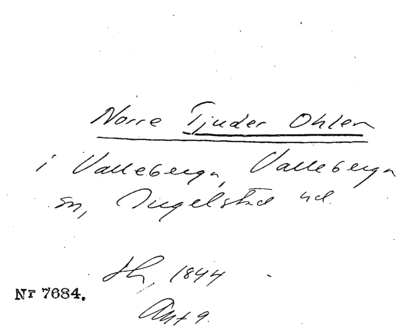 Norre Tjuder Ohlem
i Valleberga, Valleberga
sn, Ingelstad hd.
Sk, 1844
Nr 7684.
Ant 9.